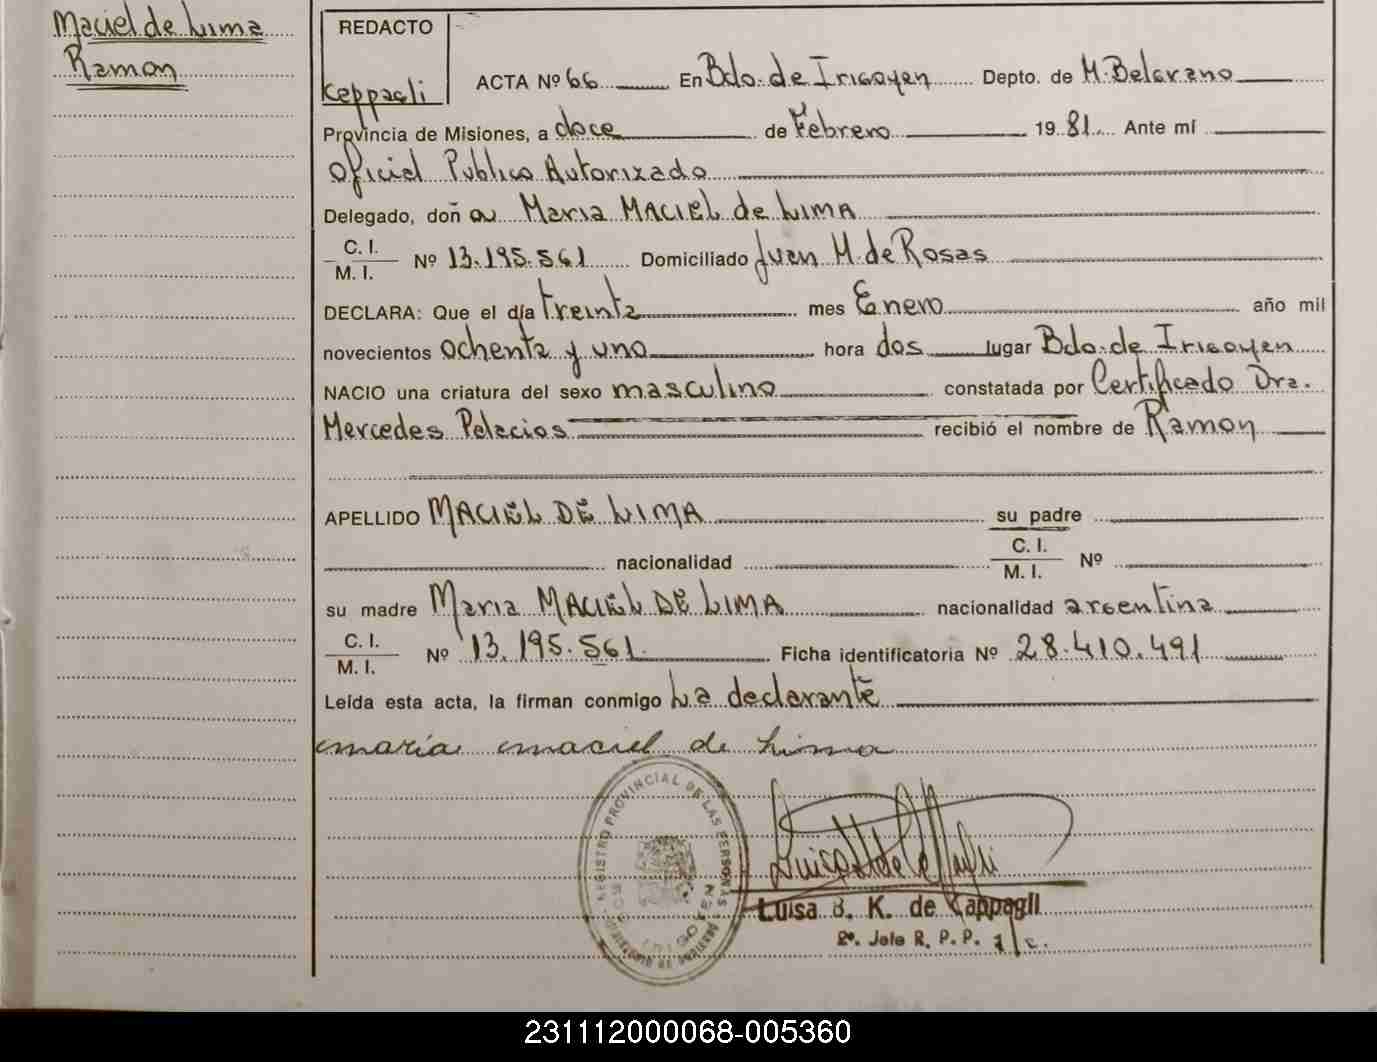 Maciel de Lima
Ramon
REDACTO
Ceppagli
ACTA Nº 66 En Bdo. de Irigoyen Depto. de M. Belgrano
Provincia de Misiones, a doce de Febrero 19 81 Ante mí
Oficial Publico Autorizado
Delegado, doña Maria MACIEL de LIMA
C. I.
M. I. Nº 13.195.561 Domiciliado Juan M. de Rosas
DECLARA: Que el día treinta mes Enero año mil
novecientos ochenta y uno hora dos lugar Bdo. de Irigoyen
NACIO una criatura del sexo masculino constatada por Certificado Dra.
Mercedes Palacios recibió el nombre de Ramon
APELLIDO MACIEL DE LIMA su padre
nacionalidad C. I.
M. I. Nº
su madre Maria MACIEL DE LIMA nacionalidad argentina
C. I.
M. I. Nº 13.195.561. Ficha identificatoria Nº 28.410.491
Leída esta acta, la firman conmigo La declarante
maria maciel de Lima
REGISTRO PROVINCIAL DE LAS PERSONAS
Luisa B. K. de Cappagli
2º. Jefe R. P. P. a/c.
231112000068-005360